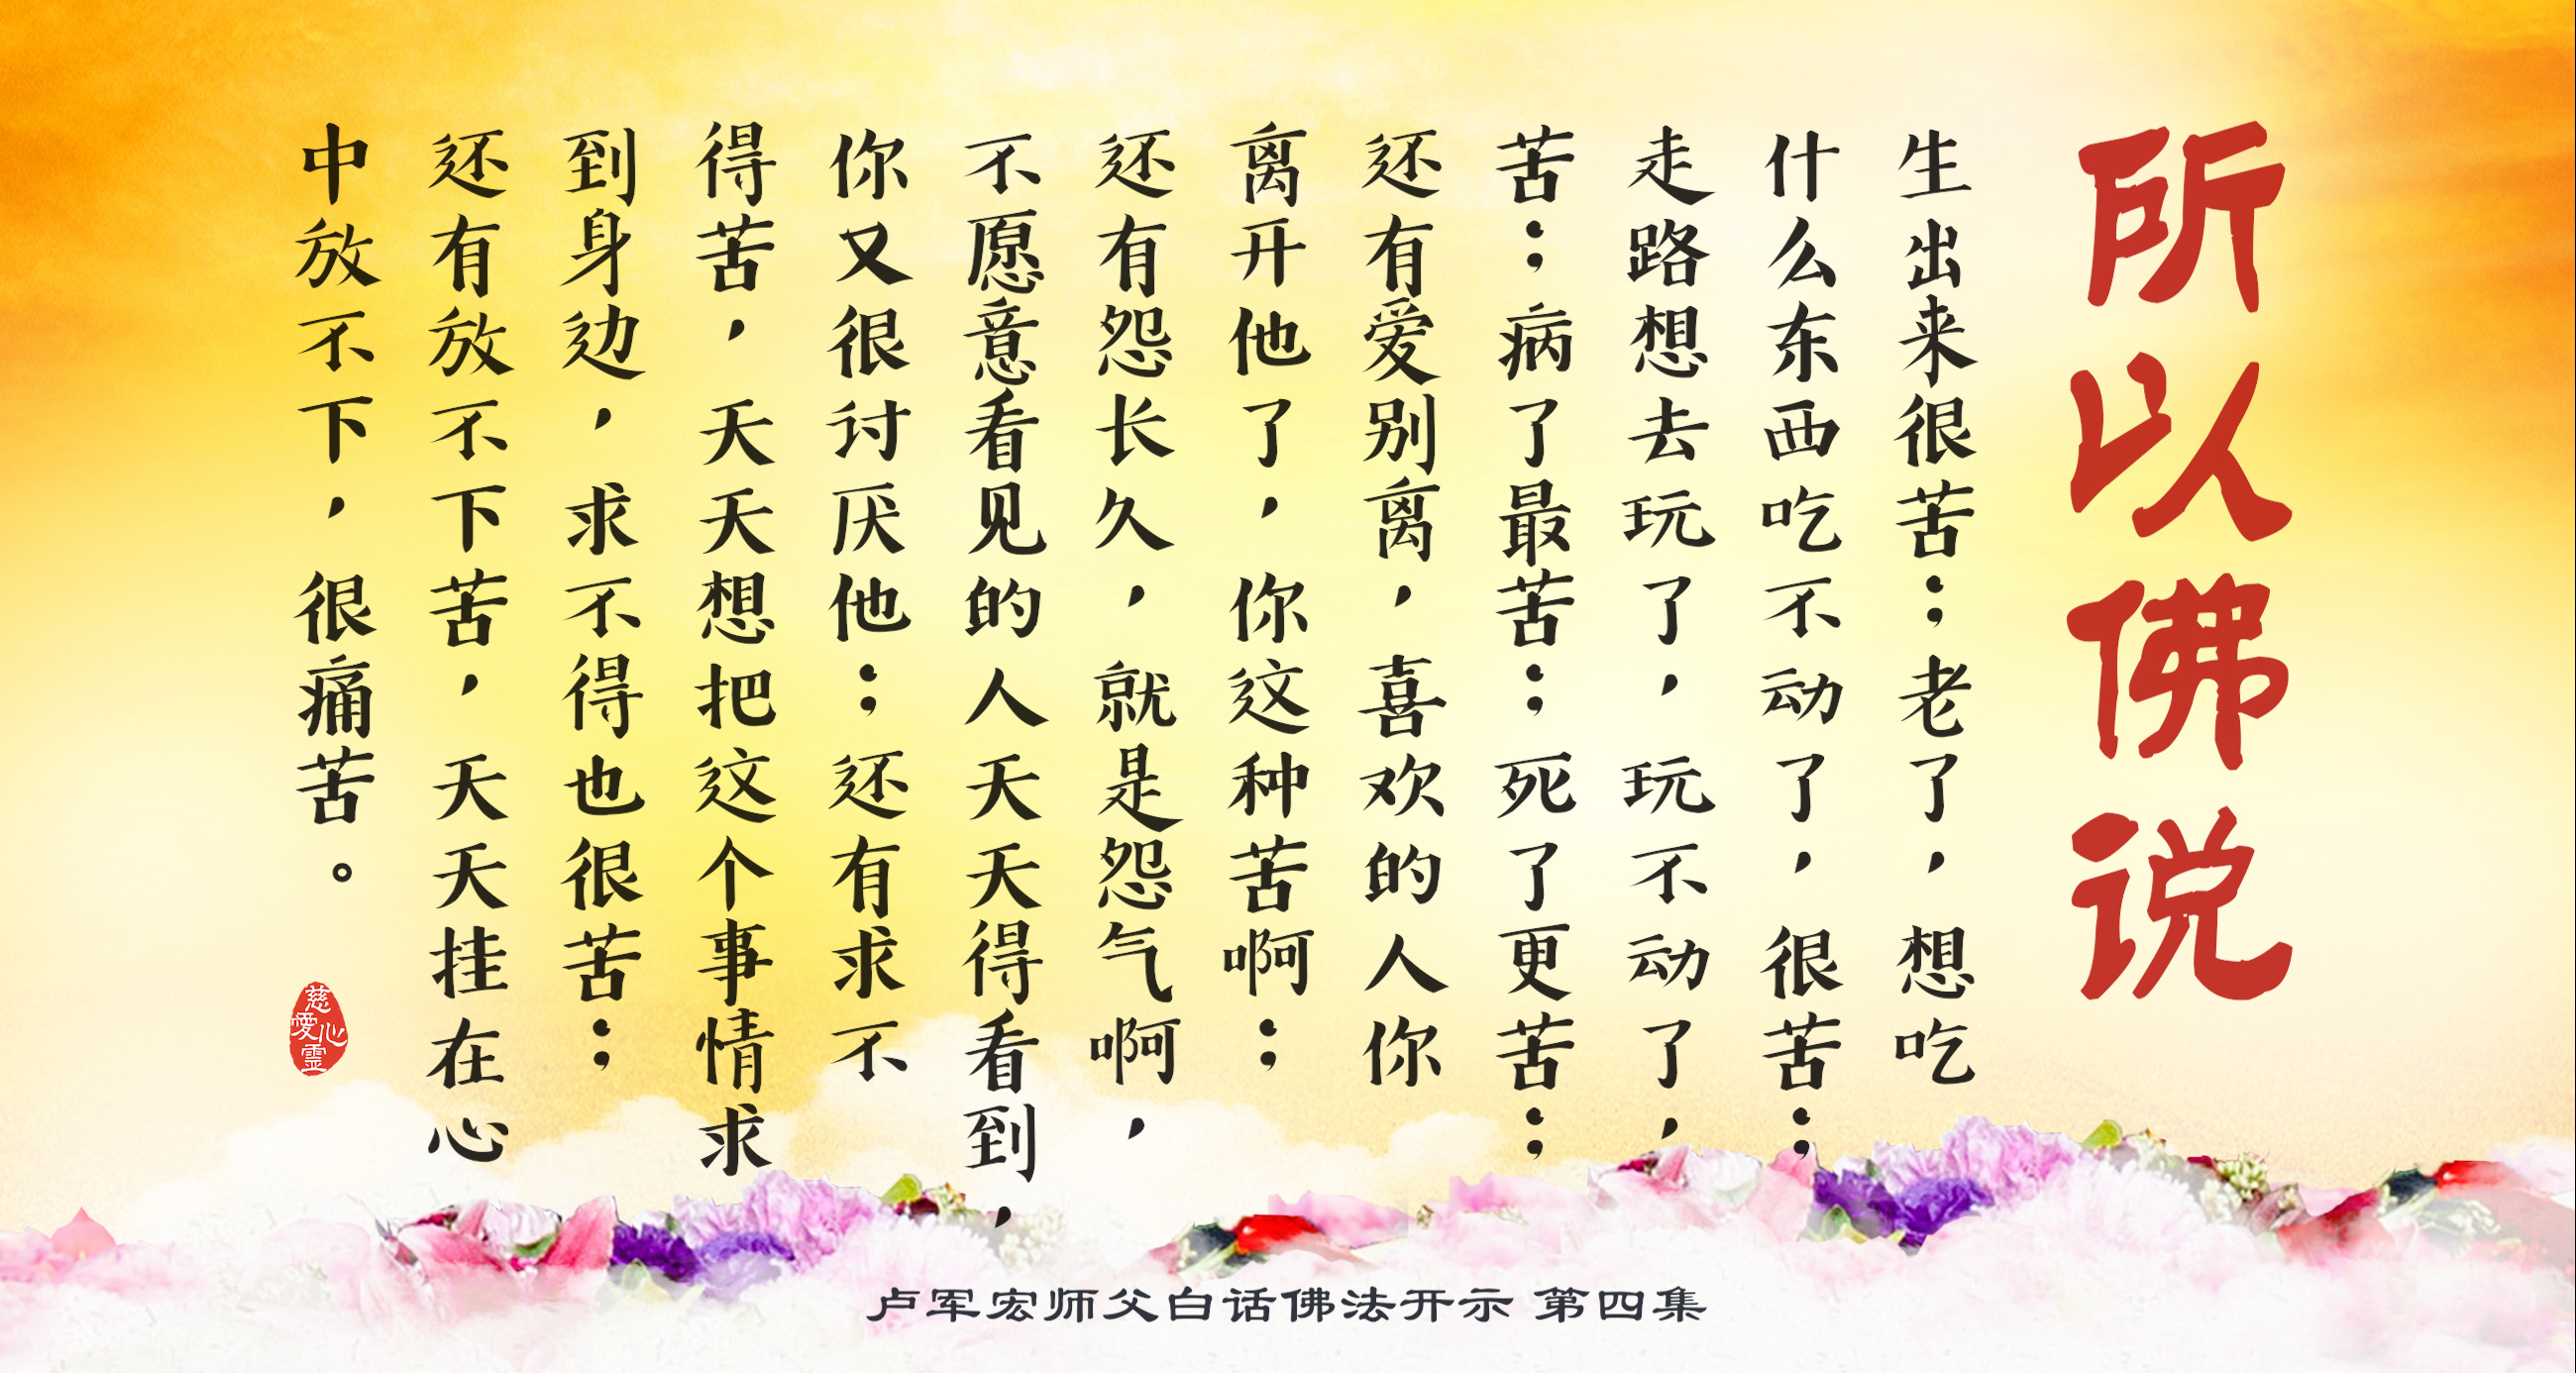 所以佛说
生出来很苦；老了，想吃
什么东西吃不动了，很苦；
走路想去玩了，玩不动了，
苦；病了最苦；死了更苦；
还有爱别离，喜欢的人你
离开他了，你这种苦啊；
还有怨长久，就是怨气啊，
不愿意看见的人天天得看到，
你又很讨厌他；还有求不
得苦，天天想把这个事情求
到身边，求不得也很苦；
还有放不下苦，天天挂在心
中放不下，很痛苦。
慈
心
愛
霊
卢军宏师父白话佛法开示 第四集